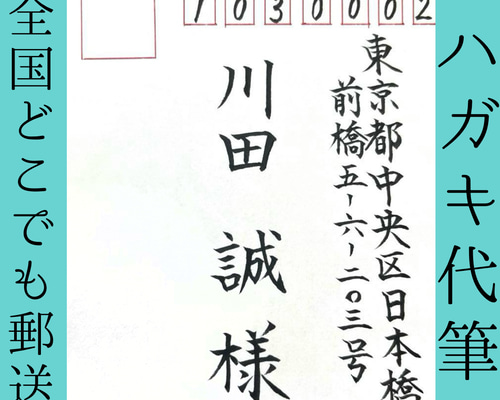 ハガキ代筆
1030002
東京都中央区日本橋
前橋五-六-二〇三号
川田 誠 様
全国どこでも郵送